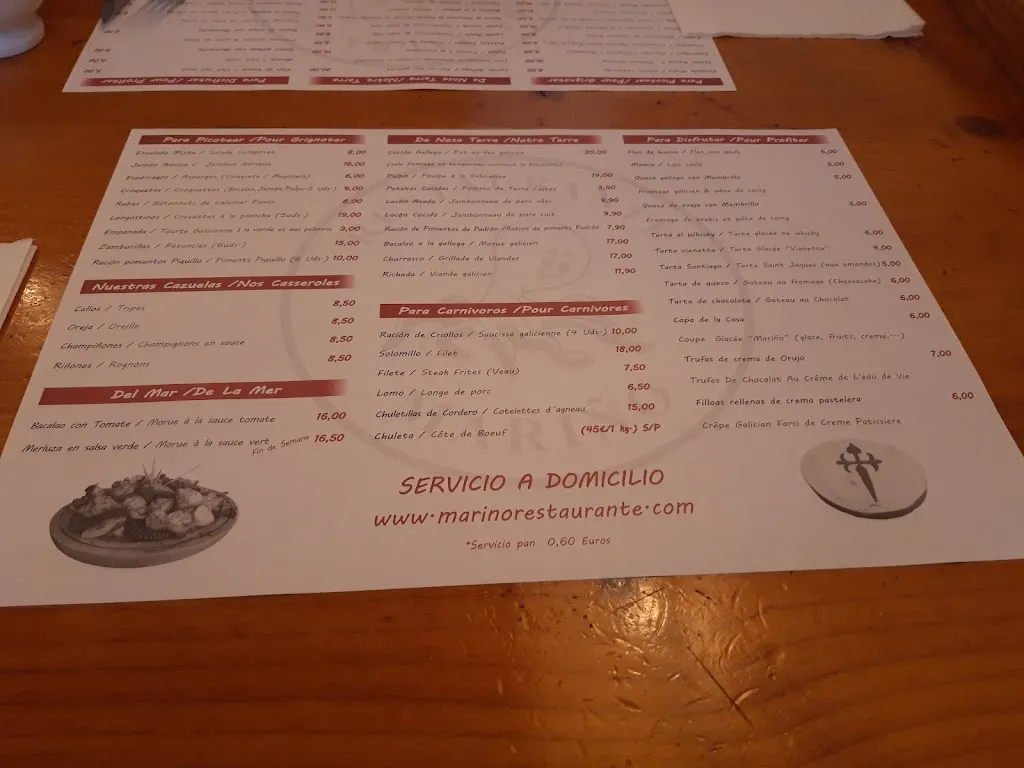 Para Picotear /Pour Grignoter
Ensalada Mixta / Salade Composée 8,00
Jamón Ibérico / Jambon Ibérique 16,00
Espárragos / Asperges (Vinagreta / Mayonesa) 6,00
Croquetas / Croquettes (Bacalao,Jamón,Pulpo·6 Uds·) 9,00
Rabas / Bâtonnets de Calamar Panés 8,00
Langostinos / Crevettes à la plancha (8uds·) 19,00
Empanada / Tourte Galicienne à la viande et aux poivrons 3,00
Zamburiñas / Pétoncles (6uds·) 15,00
Ración pimientos Piquillo / Piments Piquillo (6 Uds·) 10,00
Nuestras Cazuelas /Nos Casseroles
Callos / Tripes 8,50
Oreja / Oreille 8,50
Champiñones / Champignons en sauce 8,50
Riñones / Rognons 8,50
Del Mar /De La Mer
Bacalao con Tomate / Morue à la sauce tomate 16,00
Merluza en salsa verde / Morue à la sauce vert 16,50
Fin de Semana
De Nosa Terra /Notre Terre
Cocido Gallego / Pot-au-feu galicien 20,00
Pulpo / Poulpe à la Galicienne 19,00
Patatas Cocidas / Pomme de Terre Cuites 3,50
Lacón Asado / Jambonneau de porc rôti 9,90
Lacón Cocido / Jambonneau de porc cuit 9,90
Ración de Pimientos de Padrón /Ration de piments Padrón 7,90
Bacalao a la gallega / Morue galicien 17,00
Churrasco / Grillade de Viandes 17,00
Richada / Viande galicien 11,90
Para Carnivoros /Pour Carnivores
Ración de Criollos / Saucisse galicienne (4 Uds·) 10,00
Solomillo / Filet 18,00
Filete / Steak Frites (Veau) 7,50
Lomo / Longe de porc 6,50
Chuletillas de Cordero / Cotelettes d´agneau 15,00
Chuleta / Côte de Boeuf (45€/1 kg·) S/P
Para Disfrutar /Pour Profiter
Flan de huevo / Flan aux œufs 5,00
Mamia / Lait Caillé 5,00
Queso gallego con Membrillo 5,00
Fromage galicien & pâte de coing
Queso de oveja con Membrillo 5,00
Fromage de brebis et pâte de coing
Tarta al Whisky / Tarte glacée au whisky 6,00
Tarta vienetta / Tarte Glacée "Vienetta" 4,00
Tarta Santiago / Tarte Saint Jaques (aux amandes) 5,00
Tarta de queso / Gateau au fromage (Cheesecake) 6,00
Tarta de chocolate / Gateau au Chocolat 6,00
Copa de la Casa 6,00
Coupe Glacée "Mariño" (glace, fruits, creme,···)
Trufas de crema de Orujo 7,00
Trufes De Chocolat Au Crême de L'eau de Vie
Filloas rellenas de crema pastelera 6,00
Crêpe Galician Farci de Creme Patissiere
SERVICIO A DOMICILIO
www·marinorestaurante·com
*Servicio pan 0,60 Euros